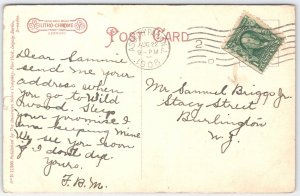 LITHO-CHROME
GERMANY
POST CARD
AUG 22
9-PM
1908
2
Dear Sammie
send me your
address when
you go to Wild
wood. Keep
your promise I
am keeping mine
Will see you soon
if I don't die
Yours.
F.B.M.
Mr Samuel Briggs Jr.
Stacy Street
Burlington
N.J.